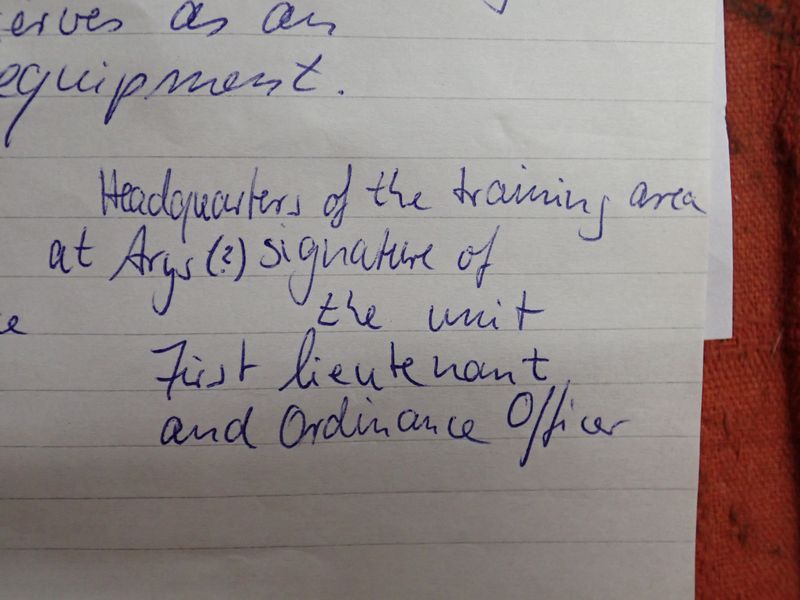 erves as an
equipment.
Headquarters of the training area
at Arys (?) signature of
the unit
First lieutenant
and Ordinance Officer